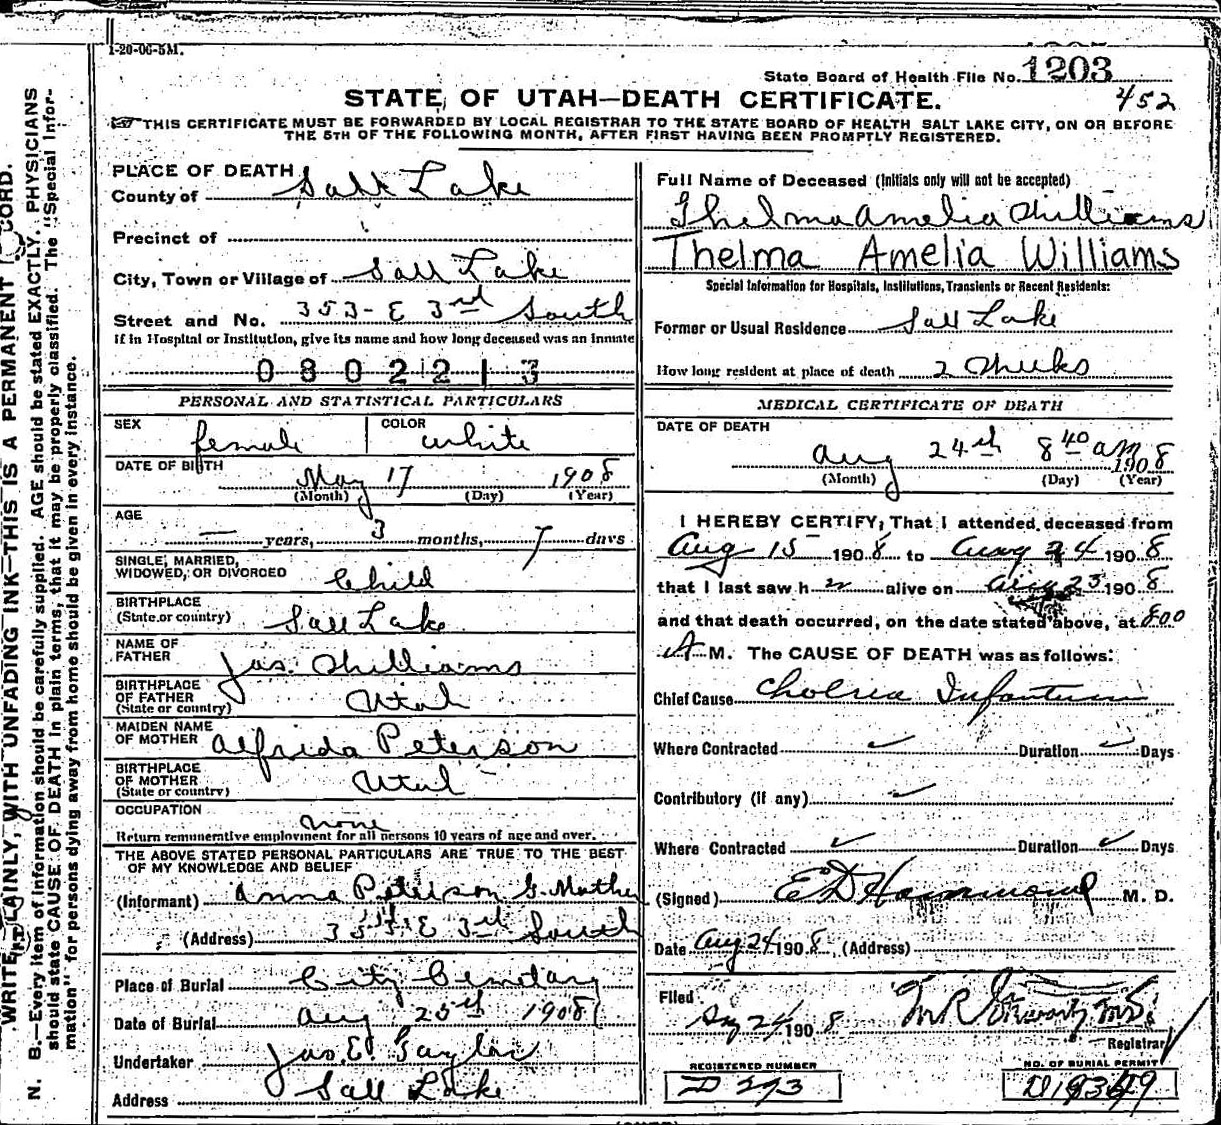 1-20-06-5M.
State Board of Health File No. 1203
452
STATE OF UTAH—DEATH CERTIFICATE.
THIS CERTIFICATE MUST BE FORWARDED BY LOCAL REGISTRAR TO THE STATE BOARD OF HEALTH SALT LAKE CITY, ON OR BEFORE
THE 5TH OF THE FOLLOWING MONTH, AFTER FIRST HAVING BEEN PROMPTLY REGISTERED.
WRITE PLAINLY, WITH UNFADING INK—THIS IS A PERMANENT RECORD.
N. B.—Every item of information should be carefully supplied. AGE should be stated EXACTLY. PHYSICIANS
should state CAUSE OF DEATH in plain terms, that it may be properly classified. The "Special Infor-
mation" for persons dying away from home should be given in every instance.
PLACE OF DEATH
County of Salt Lake
Precinct of
City, Town or Village of Salt Lake
Street and No. 353- E 3rd South
If in Hospital or Institution, give its name and how long deceased was an Inmate
0802213
PERSONAL AND STATISTICAL PARTICULARS
SEX female COLOR white
DATE OF BIRTH May 17 1908
(Month) (Day) (Year)
AGE — years, 3 months, 7 days
SINGLE, MARRIED,
WIDOWED, OR DIVORCED Child
BIRTHPLACE
(State or country) Salt Lake
NAME OF
FATHER Jas. Williams
BIRTHPLACE
OF FATHER
(State or country) Utah
MAIDEN NAME
OF MOTHER Alfrida Peterson
BIRTHPLACE
OF MOTHER
(State or country) Utah
OCCUPATION none
Return remunerative employment for all persons 10 years of age and over.
THE ABOVE STATED PERSONAL PARTICULARS ARE TRUE TO THE BEST
OF MY KNOWLEDGE AND BELIEF
(Informant) Anna Peterson G. Mother
(Address) E 3rd South
Place of Burial City Cemetary
Date of Burial Aug 25th 1908
Undertaker Jas. E. Taylor
Address Salt Lake
Full Name of Deceased (Initials only will not be accepted)
Thelma Amelia Williams
Thelma Amelia Williams
Special Information for Hospitals, Institutions, Transients or Recent Residents:
Former or Usual Residence Salt Lake
How long resident at place of death 2 Weeks
MEDICAL CERTIFICATE OF DEATH
DATE OF DEATH
Aug 24th 8 40 am 1908
(Month) (Day) (Year)
I HEREBY CERTIFY, That I attended deceased from
Aug 15 1908 to Aug 24 1908
that I last saw h er alive on Aug 23 1908
and that death occurred, on the date stated above, at 800
A M. The CAUSE OF DEATH was as follows:
Chief Cause Cholrea Infantum
Where Contracted Duration Days
Contributory (if any)
Where Contracted Duration Days
(Signed) E D Hammond M. D.
Date Aug 24 1908, (Address)
Filed
Aug 24 1908
Registrar
REGISTERED NUMBER
D 293
NO. OF BURIAL PERMIT